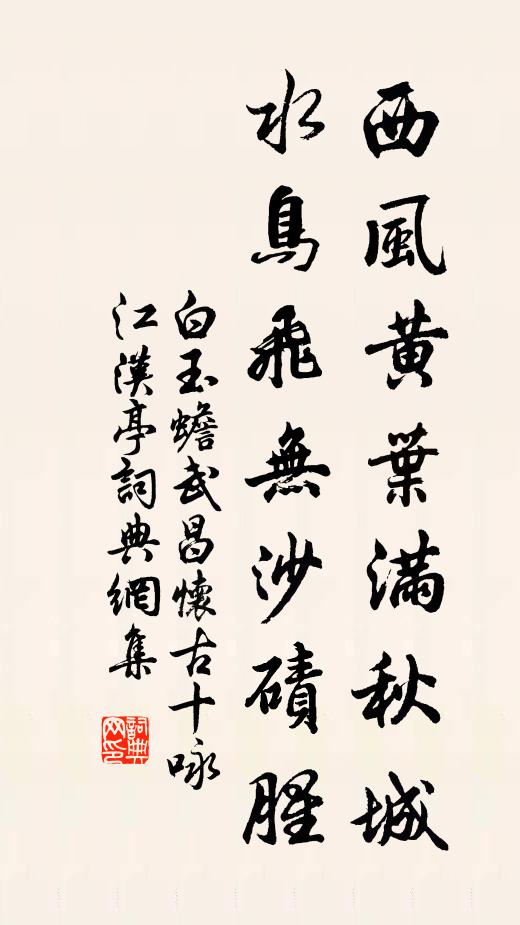 西風黄葉滿秋城
水鳥飛無沙磧腥
白玉蟾武昌懷古十咏
江漢亭詞典網集
詞典網印